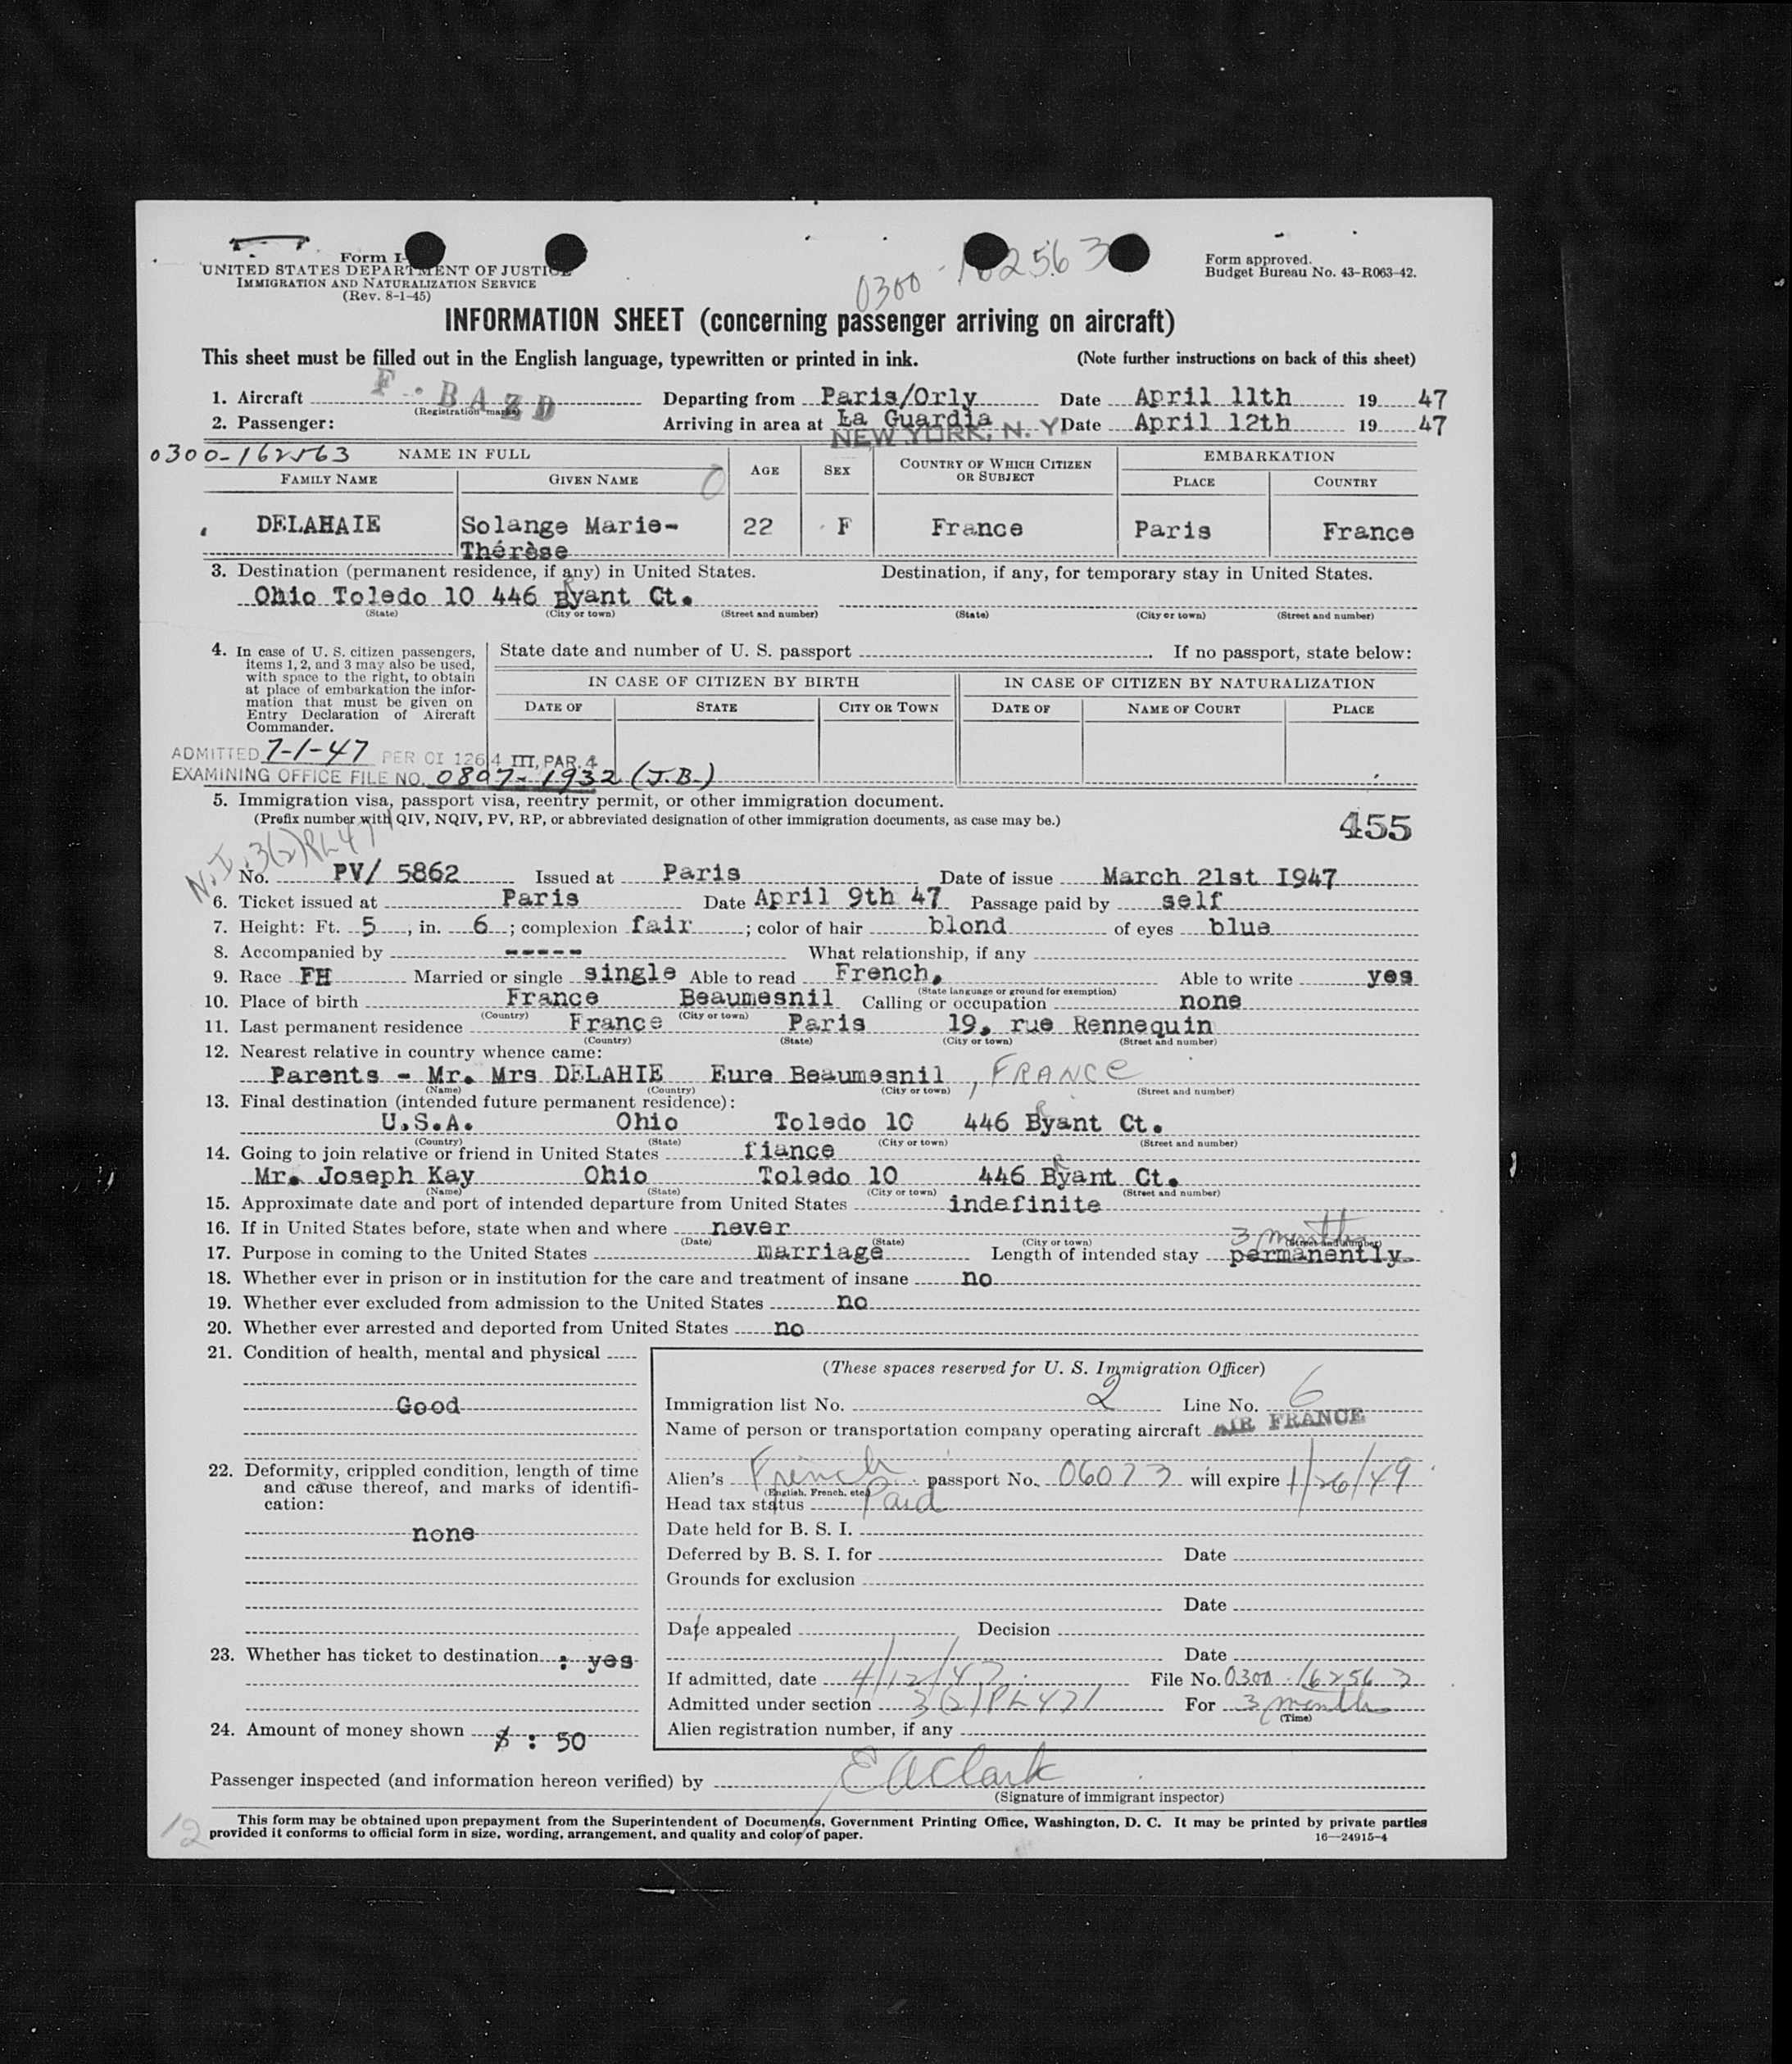 Form I-
UNITED STATES DEPARTMENT OF JUSTICE
IMMIGRATION AND NATURALIZATION SERVICE
(Rev. 8-1-45)
0300 - 162563
Form approved.
Budget Bureau No. 43-R063-42.
INFORMATION SHEET (concerning passenger arriving on aircraft)
This sheet must be filled out in the English language, typewritten or printed in ink. (Note further instructions on back of this sheet)
1. Aircraft F-BAZD (Registration marks) Departing from Paris/Orly Date April 11th 19 47
2. Passenger: Arriving in area at La Guardia Date April 12th 19 47
NEW YORK, N. Y.
0300-162563 NAME IN FULL AGE SEX COUNTRY OF WHICH CITIZEN OR SUBJECT EMBARKATION
FAMILY NAME GIVEN NAME PLACE COUNTRY
DELAHAIE Solange Marie- 22 F France Paris France
Thérèse
3. Destination (permanent residence, if any) in United States. Destination, if any, for temporary stay in United States.
Ohio Toledo 10 446 Byant Ct.
(State) (City or town) (Street and number) (State) (City or town) (Street and number)
4. In case of U. S. citizen passengers, items 1, 2, and 3 may also be used, with space to the right, to obtain at place of embarkation the information that must be given on Entry Declaration of Aircraft Commander.
State date and number of U. S. passport If no passport, state below:
IN CASE OF CITIZEN BY BIRTH IN CASE OF CITIZEN BY NATURALIZATION
DATE OF STATE CITY OR TOWN DATE OF NAME OF COURT PLACE
ADMITTED 7-1-47 PER OI 126.4 III, PAR. 4
EXAMINING OFFICE FILE NO. 0807-1932 (J.B.)
5. Immigration visa, passport visa, reentry permit, or other immigration document.
(Prefix number with QIV, NQIV, PV, RP, or abbreviated designation of other immigration documents, as case may be.)
455
N.I. 3(2)PL471
No. PV/ 5862 Issued at Paris Date of issue March 21st I947
6. Ticket issued at Paris Date April 9th 47 Passage paid by self
7. Height: Ft. 5, in. 6; complexion fair; color of hair blond of eyes blue
8. Accompanied by ----- What relationship, if any
9. Race FH Married or single single Able to read French, Able to write yes
(State language or ground for exemption)
10. Place of birth France Beaumesnil Calling or occupation none
(Country) (City or town)
11. Last permanent residence France Paris 19, rue Rennequin
(Country) (State) (City or town) (Street and number)
12. Nearest relative in country whence came:
Parents - Mr. Mrs DELAHIE Eure Beaumesnil, FRANCE
(Name) (Country) (City or town) (Street and number)
13. Final destination (intended future permanent residence):
U.S.A. Ohio Toledo 10 446 Byant Ct.
(Country) (State) (City or town) (Street and number)
14. Going to join relative or friend in United States fiance
Mr. Joseph Kay Ohio Toledo 10 446 Byant Ct.
(Name) (State) (City or town) (Street and number)
15. Approximate date and port of intended departure from United States indefinite
16. If in United States before, state when and where never
(Date) (State) (City or town) (Street and number)
3 months
17. Purpose in coming to the United States marriage Length of intended stay permanently
18. Whether ever in prison or in institution for the care and treatment of insane no
19. Whether ever excluded from admission to the United States no
20. Whether ever arrested and deported from United States no
21. Condition of health, mental and physical
Good
22. Deformity, crippled condition, length of time and cause thereof, and marks of identification:
none
23. Whether has ticket to destination : yes
24. Amount of money shown $ : 50
(These spaces reserved for U. S. Immigration Officer)
Immigration list No. 2 Line No. 6
Name of person or transportation company operating aircraft AIR FRANCE
Alien's French passport No. 06073 will expire 1/26/49
(English, French, etc.)
Head tax status Paid
Date held for B. S. I.
Deferred by B. S. I. for Date
Grounds for exclusion
Date
Date appealed Decision
Date
If admitted, date 4/12/47 File No. 0300-162563
Admitted under section 3(2)PL471 For 3 months
(Time)
Alien registration number, if any
Passenger inspected (and information hereon verified) by E A Clark
(Signature of immigrant inspector)
12
This form may be obtained upon prepayment from the Superintendent of Documents, Government Printing Office, Washington, D. C. It may be printed by private parties
provided it conforms to official form in size, wording, arrangement, and quality and color of paper.
16—24915-4